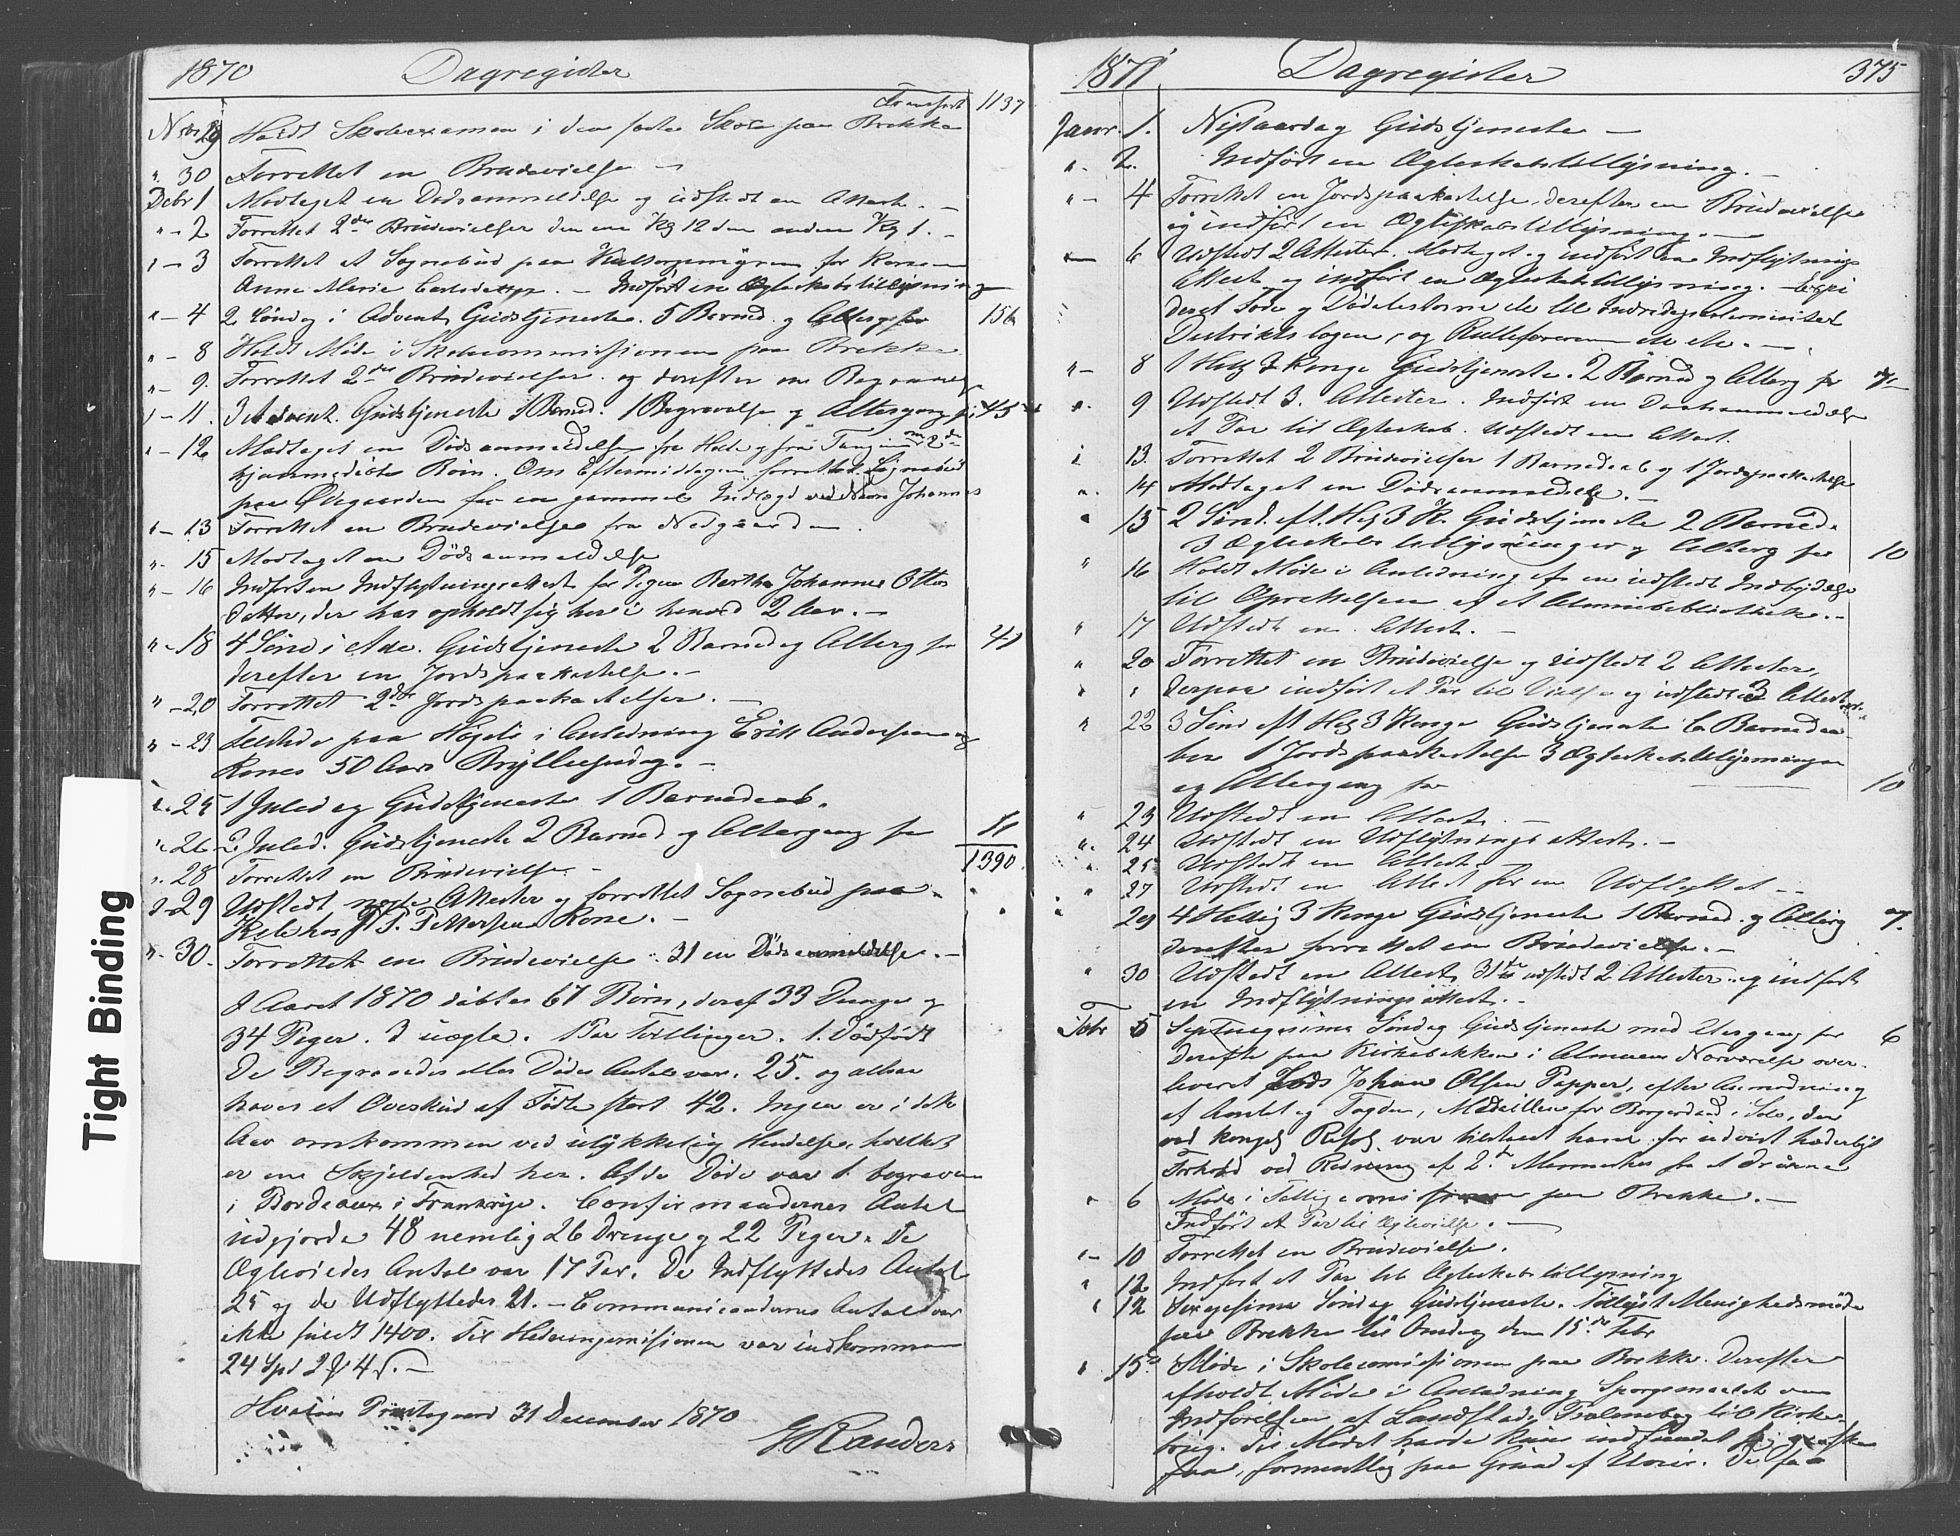 1870 Dagregister
Transport 1137
Nvbr 29 Holdt Skoleexamen i den faste Skole paa Brekke
" 30 Forrettet en Brudevielse —
Debr 1 Modtaget en Dødsanmeldelse og udstedt en Attest. —
" - 2 Forrettet 2de Brudevielser den ene Kl 12 den anden Kl 1. —
" - 3 Forrettet et Sognebud paa for Konen
Anne Marie . — Indført en Ægteskabstillysning
" - 4 2 Søndag i Advent Gudstjeneste. 5 Barned. og Alterg for 156
" - 8 Holdt Møde i Skolecommissionen paa Brekke
" - 9. Forrettet 2de Brudevielser og derefter en Begravelse
" - 11. 3 Advent. Gudstjeneste 1 Barned. 1 Begravelse og Altergang for 45
" - 12 Modtaget en Dødsanmeldelse fra og fra om 2de
hjemmedøbte Børn. Om Eftermiddagen forrettet Sognebud
paa Ødegaarden for en gammel Indlagd ved Navn Johannes
" - 13 Forrettet en Brudevielse fra Nedgaarden
" 15 Modtaget en Dødsanmeldelse
" - 16 Indført en Indflytningsattest for Pigen Berthe Johanne Otters
datter, der har opholdt sig her i henved 2 Aar. —
" - 18 4 Sønd i Adv. Gudstjeneste 2 Barned og Alterg for 41
derefter en Jordspaakastelse. —
" - 20 Forrettet 2de Jordspaakastelser. —
" - 23 Tilstede paa i Anledning Erik Andersen og
Kones 50 Aars Bryllupsdag. —
" - 25 1 Juledag Gudstjeneste 1 Barnedaab.
" - 26 2 Juled. Gudstjeneste 2 Barned og Altergang for 11
1390
" 28 Forrettet en Brudevielse. —
" - 29 Udstedt Attester og forrettet Sognebud paa
hos P. Pettersens Kone. —
" - 30. Forrettet en Brudevielse. 31 en Dødsanmeldelse. —
I Aaret 1870 døbtes 67 Børn, deraf 33 Drenge og
34 Piger. 3 uægte. 1 Par Tvillinger. 1. Dødfødt
De Begravedes eller Dødes Antal var. 25. og altsaa
haves et Overskud af Fødte stort 42. Ingen er i dette
Aar omkommen ved ulykkelig Hendelse, hvilket
er en Skjeldenhed her. Af de Døde var 1 begraven
i Bordeaux i Frankrige. Confirmandernes Antal
udgjorde 48 nemlig 26 Drenge og 22 Piger. De
Ægteviedes Antal var 17 Par. De Indflyttedes Antal
25 og de Udflyttedes 21. — Communicandernes Antal var
ikke fuldt 1400. Til Hedningemissionen var indkommen
24 Spd 2 4 s. —
Hvaler Præstegaard 31 December 1870
G Randers
Tight Binding
1871 Dagregister 375
Janr. 1. Nytaarsdag Gudstjeneste —
" - 2. Indført en Ægteskabstillysning. —
" - 4 Forrettet en Jordspaakastelse, derefter en Brudevielse
og indført en Ægteskabstillysning. —
6 Udstedt 2 Attester. Modtaget og indført en Indflytnings
Attest og indført en Ægteskabstillysning.
deret Føde og Dødelisterne etc til
Distriktslægen, og Rulleføreren etc etc. —
" - 8 1 Hell 3 Konge Gudstjeneste. 2 Barned og Alterg for
" 9 Udstedt 3. Attester. Indført en Dødsanmeldelse
et Par til Ægteskab. Udstedt en Attest.
" 13. Forrettet 2 Brudevielser 1 Barnedaab og 1 Jordspaakastelse
" 14 Modtaget en Dødsanmeldelse. —
" 15 2 Sønd. eft. Hel 3 K. Gudstjeneste 2 Barned.
3 Ægteskabstillysninger og Alterg for 10
" 16 Holdt Møde i Anledning af en udstedt Indbydelse
til Oprettelsen af et Almuebibliothek. —
" 17 Udstedt en Attest. —
" 20 Forrettet en Brudevielse og udstedt 2 Attester,
" " derpaa indført et Par til Vielse og udstedt 3 Attester. —
" 22 3 Sønd eft Hel 3 Konge Gudstjeneste 6 Barnedaa-
ber 1 Jordspaakastelse 3 Ægteskabstillysninger
og Altergang for 10
" 23 Udstedt en Attest. —
" 24 Udstedt en Udflytningsattest. —
" 25 Udstedt en Attest —
" 27 Udstedt en Attest for en Udflyttet —
29 4 Hellig 3 Konge Gudstjeneste 1 Barned. og Alterg 7.
derefter forrettet en Brudevielse. —
" 30 Udstedt en Attest, 31te udstedt 2 Attester og indført
en Indflytningsattest. —
Febr 5 Septuagesima Søndag Gudstjeneste med Altergang for 6
derefter paa Kirkebakken i Almuens Nærværelse over-
leveret Lods Johan Olsen Papper, efter Anmodning
af Amtet og Fogden, Medaillen for Borgerdaad i Sølv, den
ved kongel Resol var tilstaaet ham for udvist hæderligt
Forhold ved Redning af 2de Mennesker fra at drukne
" 6 Møde i Fattigcommissionen paa Brekke. —
Indført et Par til Ægtevielse. —
" - 10 Forrettet en Brudevielse.
" 12 Indført et Par til Ægteskabstillysning
" 12 Sexagesima Søndag Gudstjeneste. Tillyst Menighedsmøde
paa Brekke til Onsdag den 15de Febr
" 15de Møde i Skolecommissionen paa Brekke. Derefter
afholdt Møde i Anledning Spørgsmaalet om
Indførelsen af Landstads Psalmebog til Kirke-
brug. Til Mødet havde kun indfundet sig ganske
faa, formentlig paa Grund af Uveir. De faa